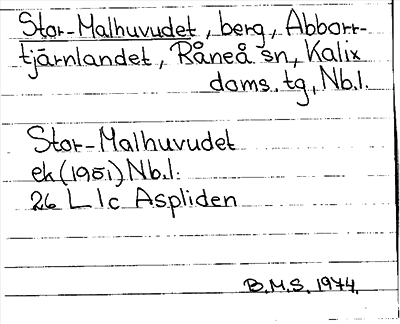 Stor-Malhuvudet, berg, Abborr-
tjärnlandet, Råneå sn, Kalix
doms. tg, Nb.l.
Stor-Malhuvudet
ek (1951) Nb.l.
26 L 1c Aspliden
B.M.S. 1974.